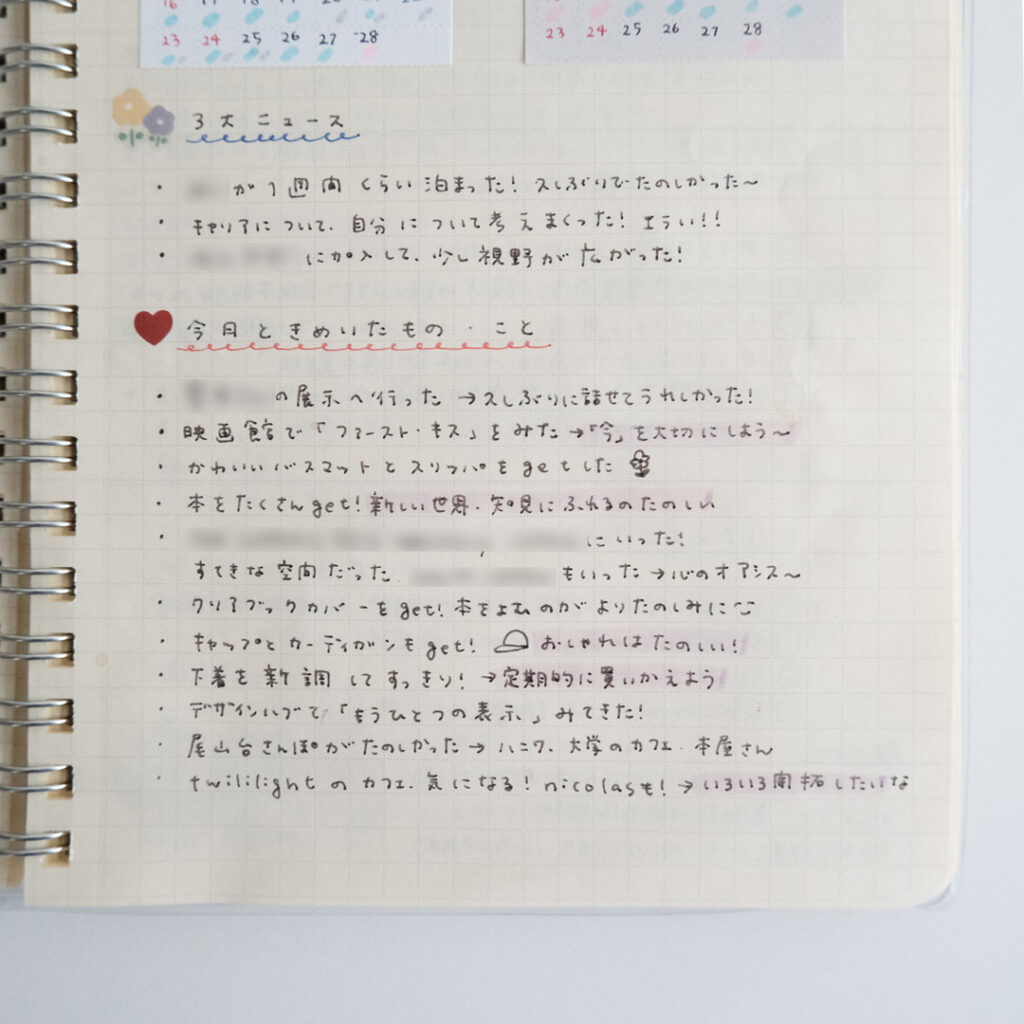 16 17 18 19 20 21 22
23 24 25 26 27 28
23 24 25 26 27 28
3大ニュース
・ が1週間くらい泊まった!久しぶりでたのしかった〜
・キャリアについて、自分について考えまくった!エラい!!
・ に加入して、少し視野が広がった!
今月ときめいたもの・こと
・ の展示へ行った→久しぶりに話せてうれしかった!
・映画館で「ファースト・キス」をみた→「今」を大切にしよう〜
・かわいいバスマットとスリッパをgetした
・本をたくさんget!新しい世界・知見にふれるのたのしい
・ にいった!
すてきな空間だった もいった→心のオアシス〜
・クリアブックカバーをget!本をよむのがよりたのしみに
・キャップとカーディガンもget! おしゃれはたのしい!
・下着を新調してすっきり!→定期的に買いかえよう
・デザインハブで「もうひとつの表示」みてきた!
・尾山台さんぽがたのしかった→ハニワ、大学のカフェ・本屋さん
・twililightのカフェ、気になる!nicolasも!→いろいろ開拓したいな